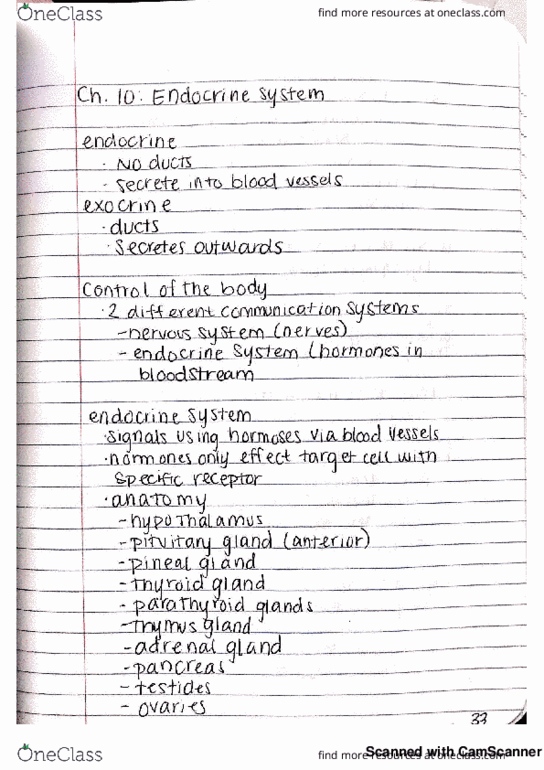 OneClass
find more resources at oneclass.com
Ch. 10: Endocrine System
endocrine
· No ducts
- secrete into blood vessels
exocrine
· ducts
· Secretes outwards
Control of the body
· 2 different communication systems
- nervous system (nerves)
- endocrine system (hormones in
bloodstream
endocrine system
· signals using hormoses via blood vessels
· hormones only effect target cell with
specific receptor
· anatomy
- hypothalamus
- pituitary gland (anterior)
- pineal gland
- thyroid gland
- parathyroid glands
- thymus gland
- adrenal gland
- pancreas
- testides
- ovaries
33
OneClass
find more resources at oneclass.com
Scanned with CamScanner